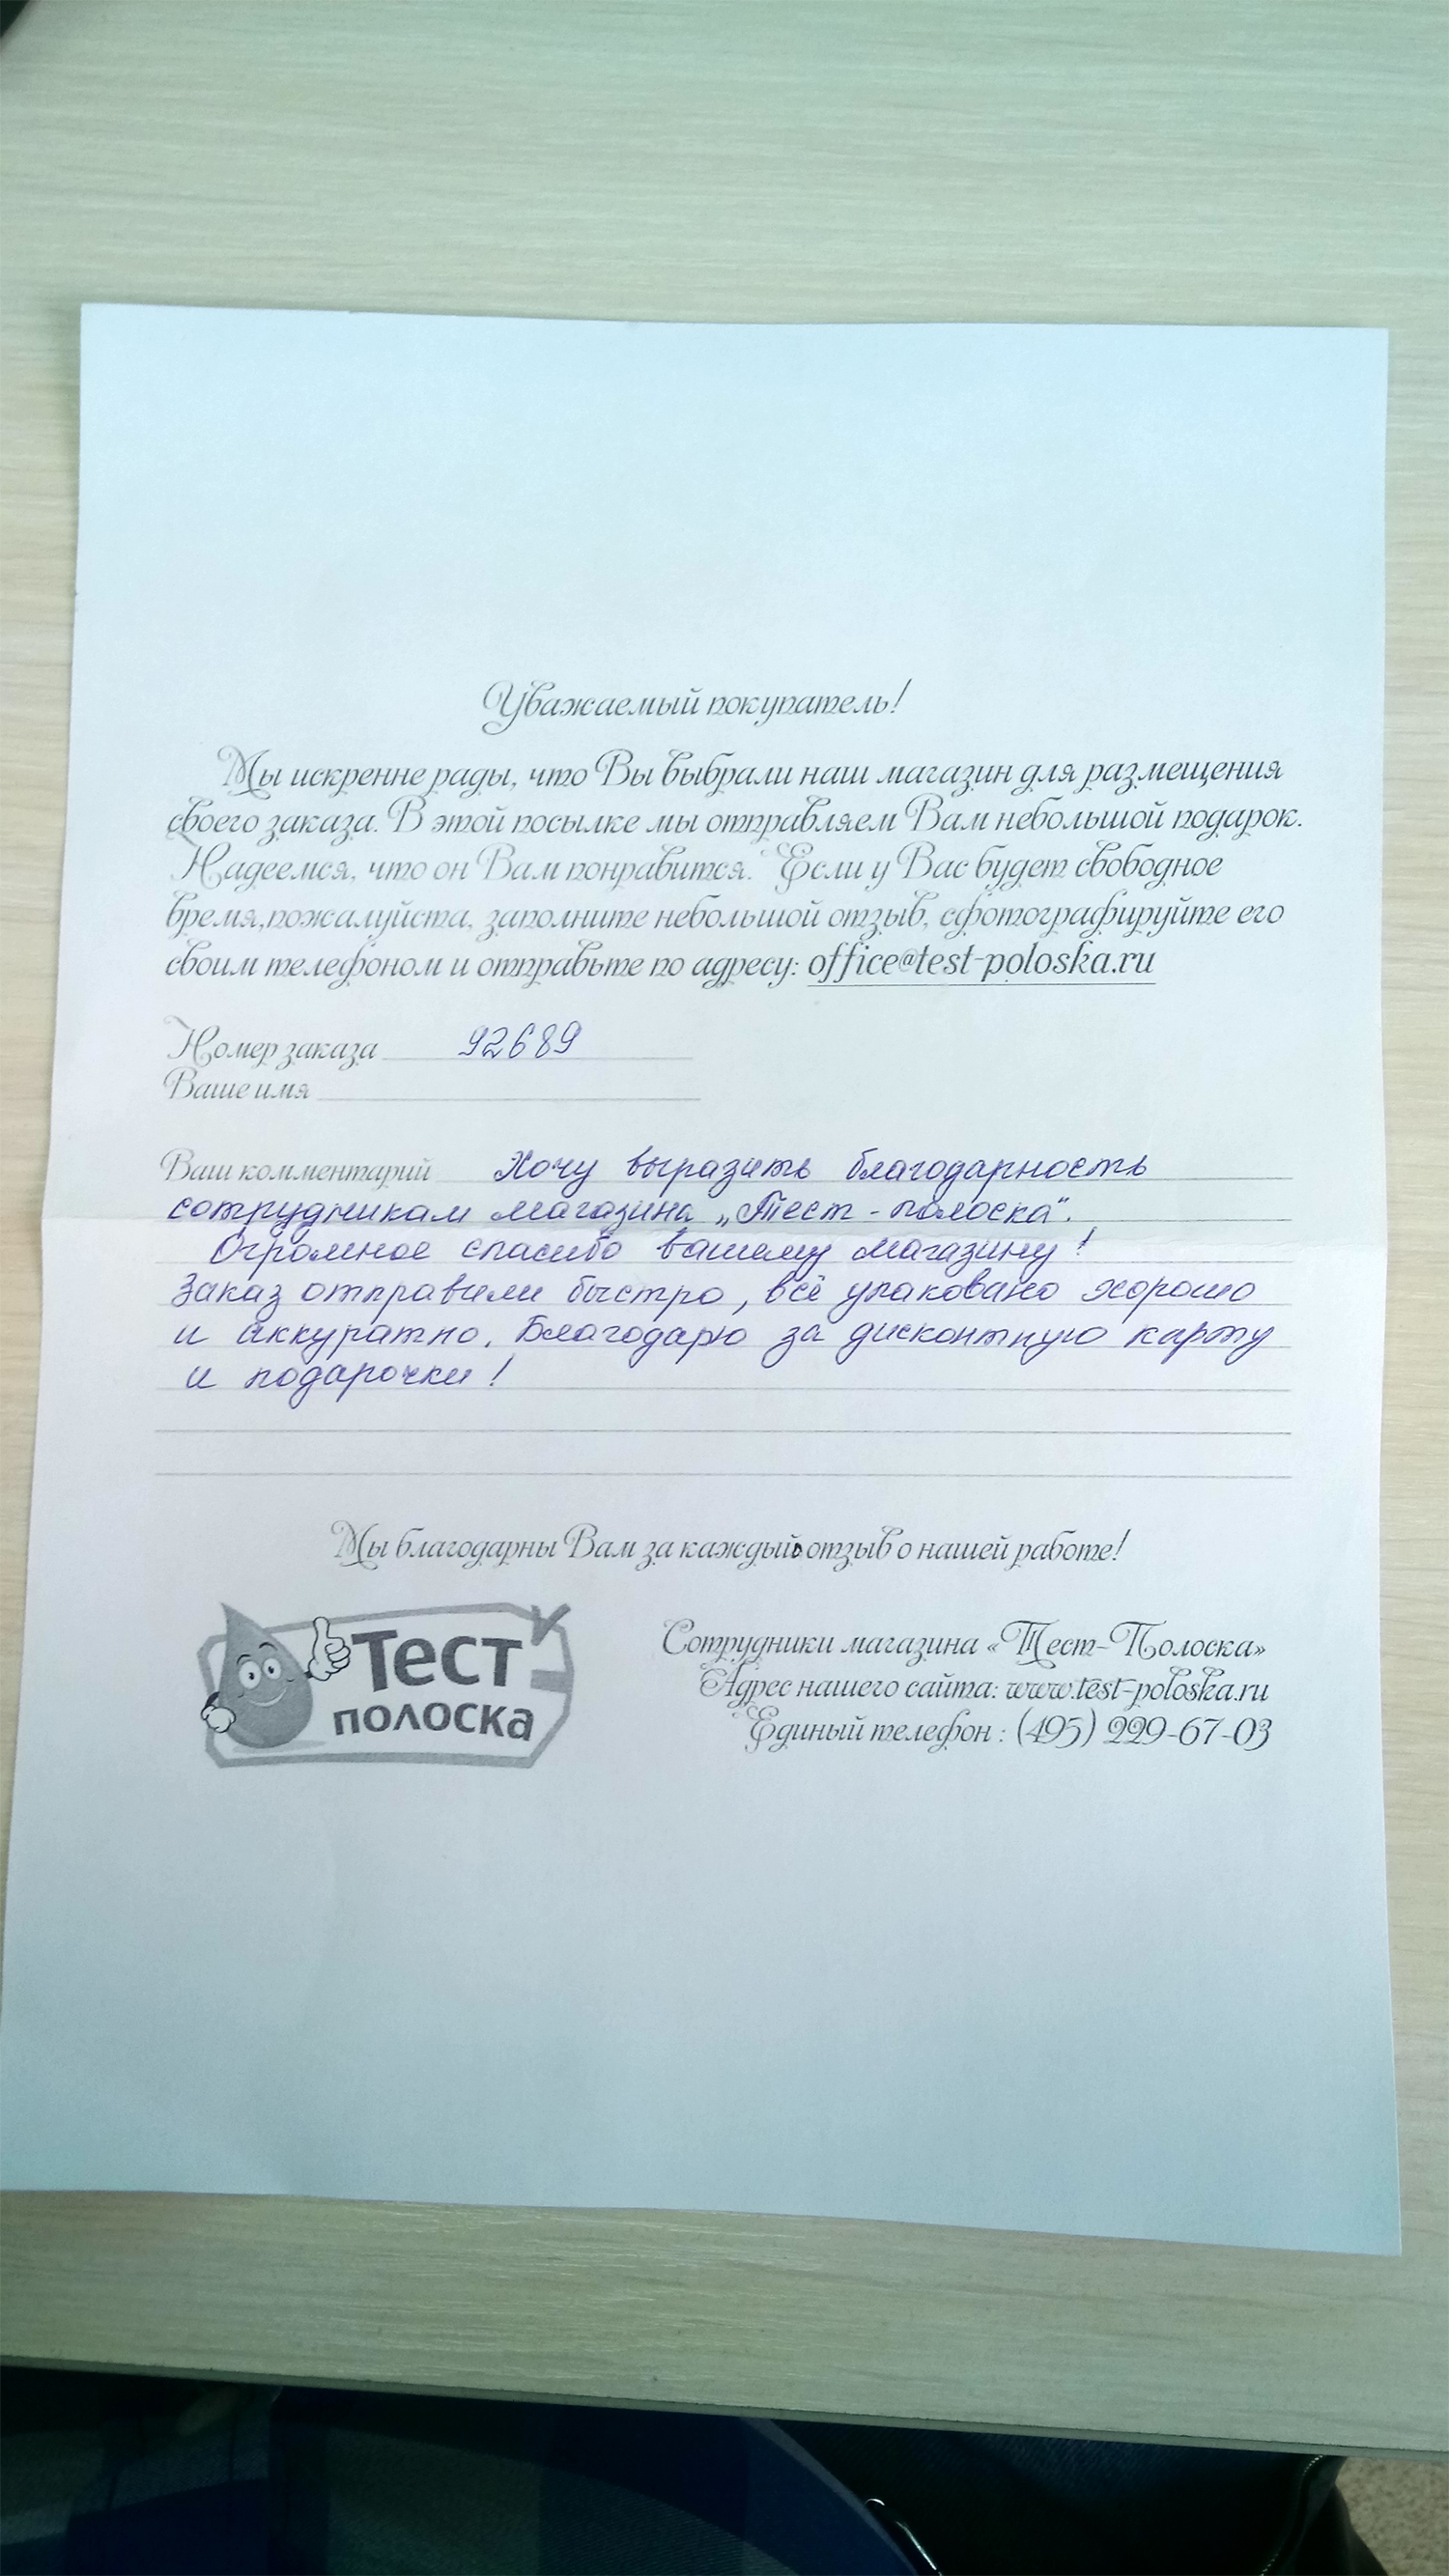 Уважаемый покупатель!
Мы искренне рады, что Вы выбрали наш магазин для размещения
своего заказа. В этой посылке мы отправляем Вам небольшой подарок.
Надеемся, что он Вам понравится. Если у Вас будет свободное
время,пожалуйста, заполните небольшой отзыв, сфотографируйте его
своим телефоном и отправьте по адресу: office@test-poloska.ru
Номер заказа 92689
Ваше имя
Ваш комментарий Хочу выразить благодарность
сотрудникам магазина „Тест - полоска".
Огромное спасибо вашему магазину!
Заказ отправили быстро, всё упаковано хорошо
и аккуратно. Благодарю за дисконтную карту
и подарочки!
Мы благодарны Вам за каждый отзыв о нашей работе!
Тест
полоска
Сотрудники магазина «Тест-Полоска»
Адрес нашего сайта: www.test-poloska.ru
Единый телефон : (495) 229-67-03